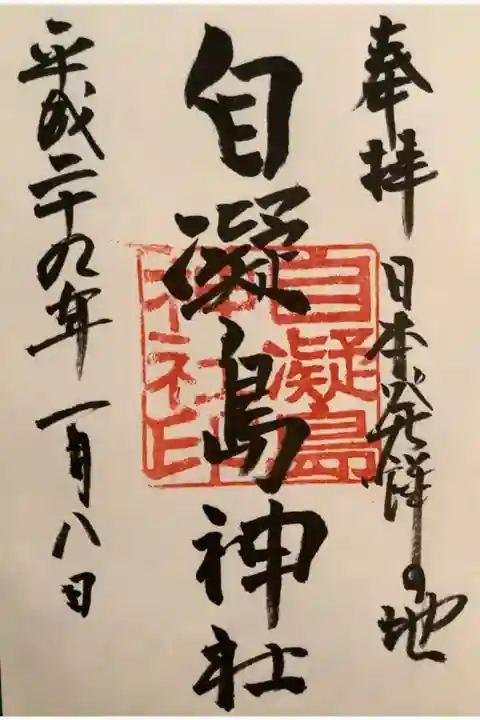 奉拝 日本発祥の地
自凝島神社
自凝島神社印
平成二十九年一月八日